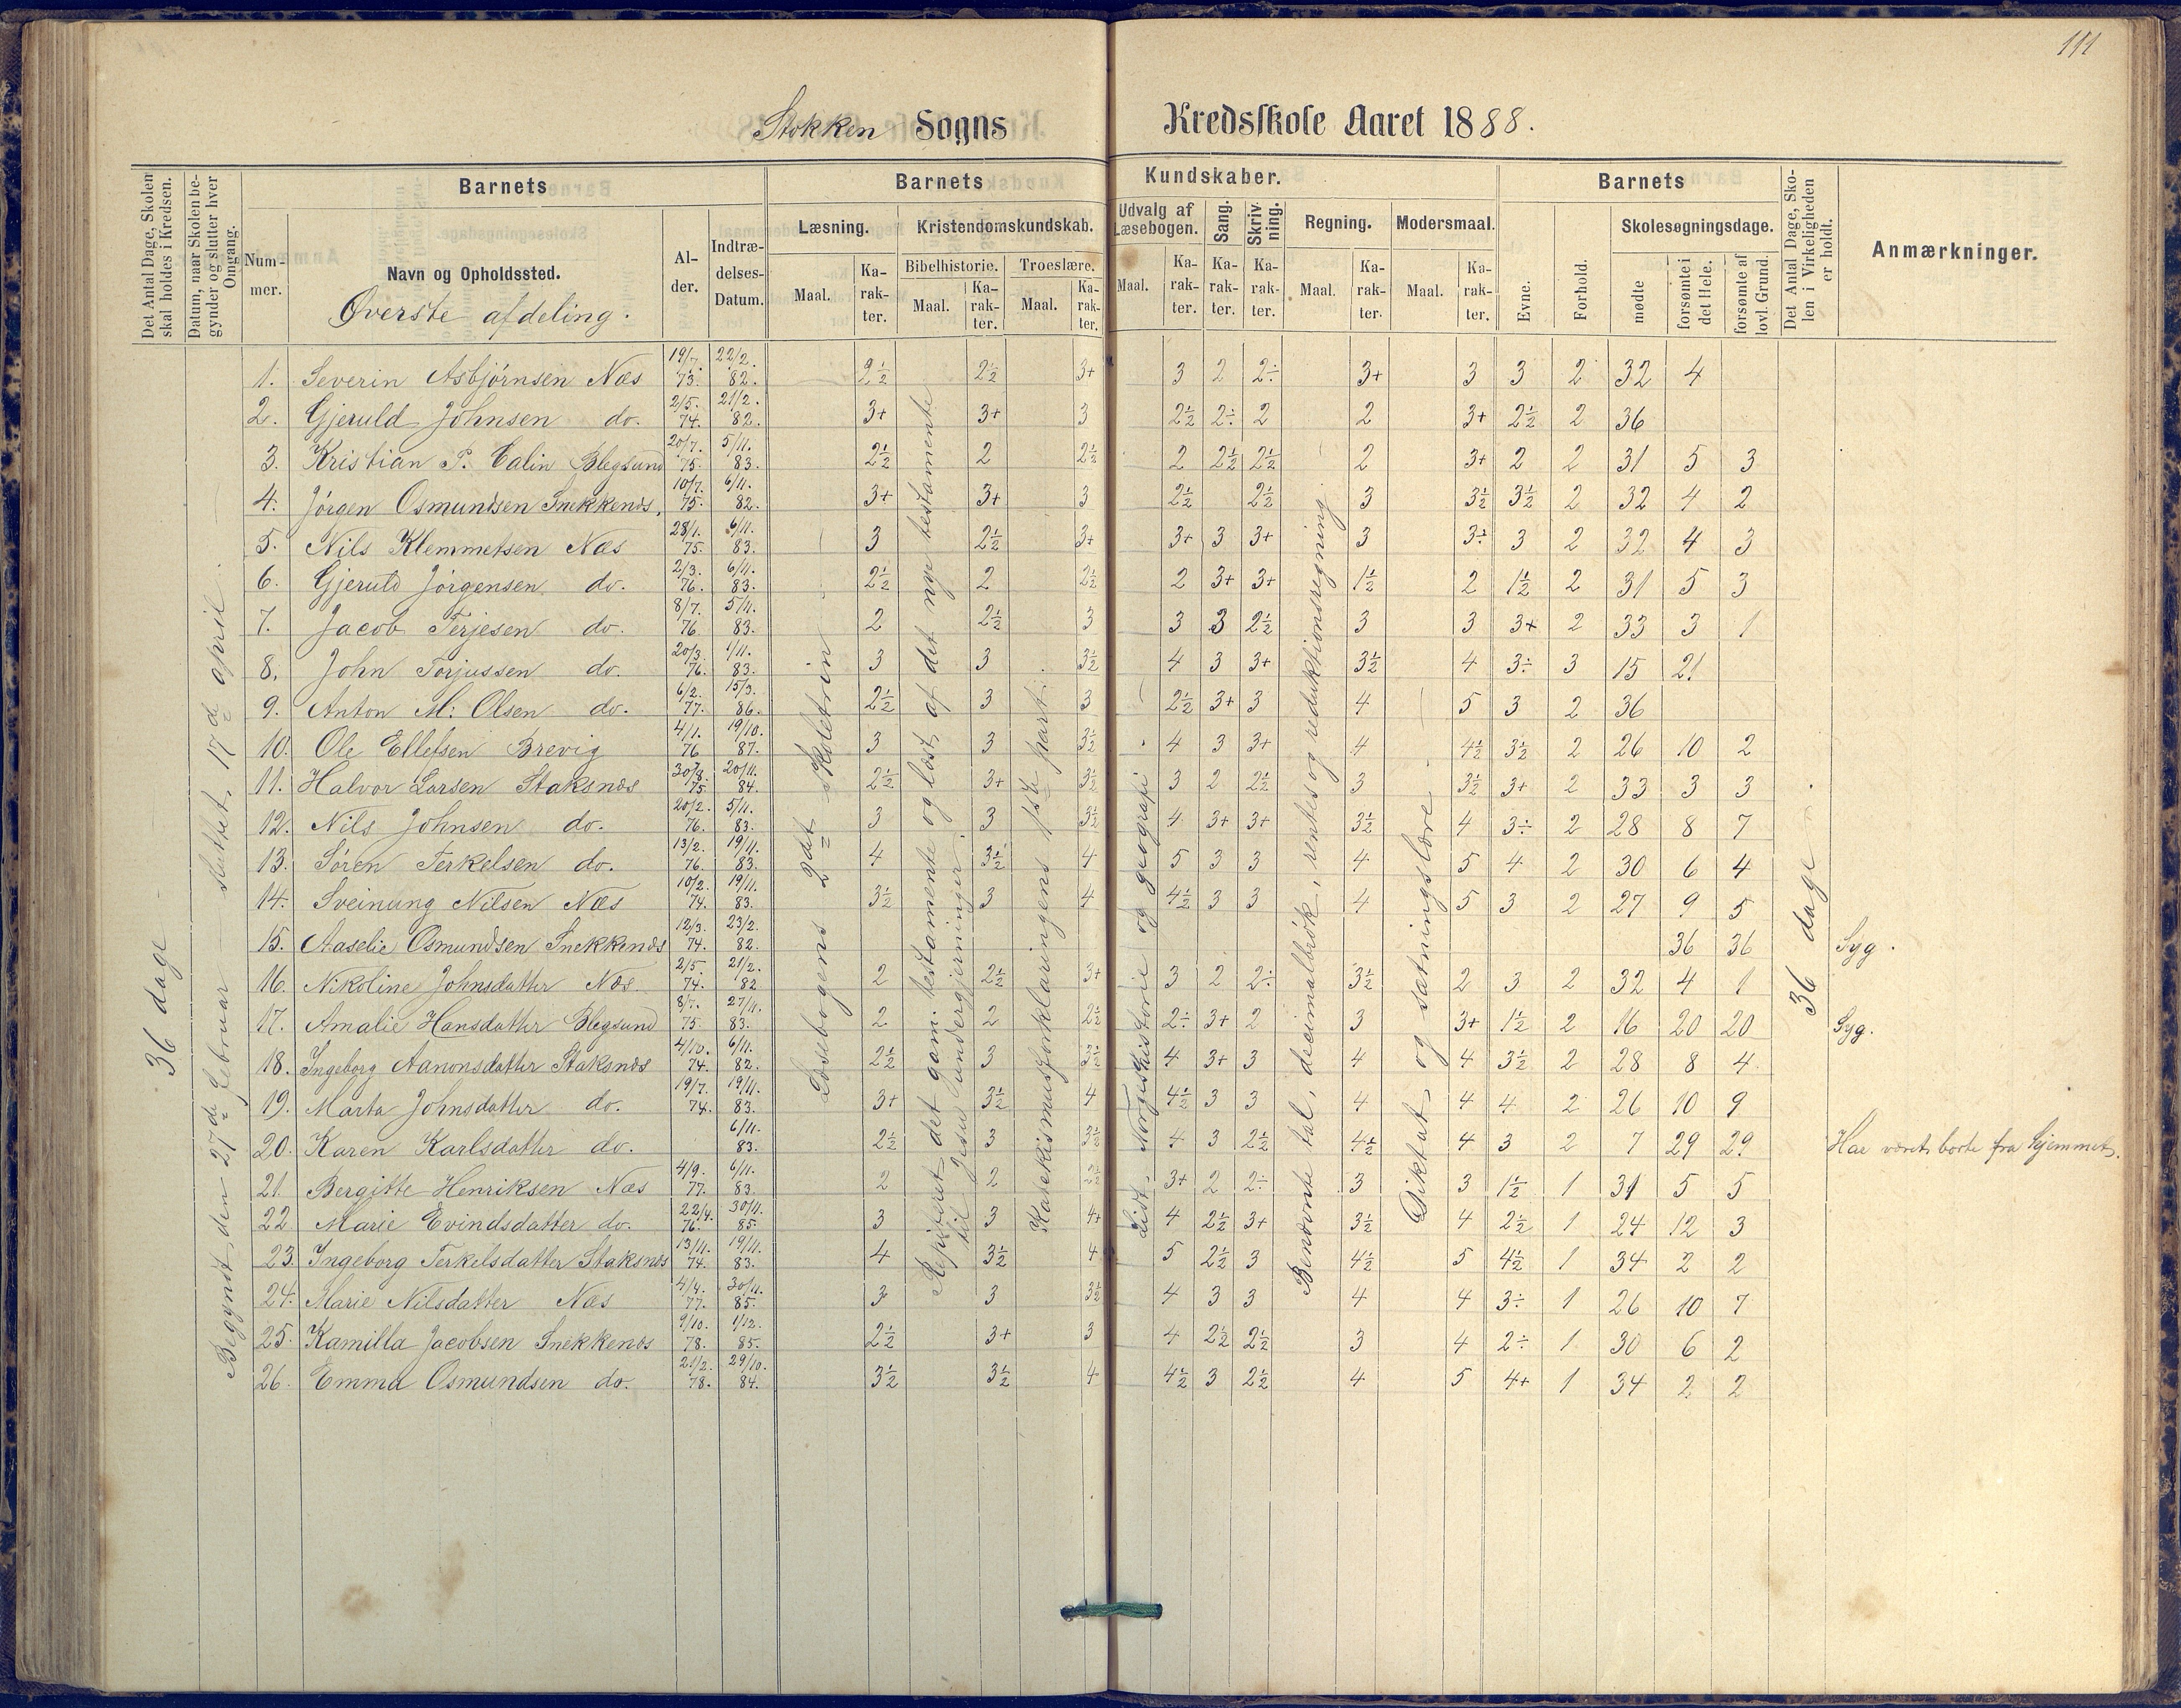 111
Stokken Sogns Kredsskole Aaret 1888.
Det Antal Dage, Skolen skal holdes i Kredsen.
Datum, naar Skolen begynder og slutter hver Omgang.
Barnets
Nummer.
Navn og Opholdssted.
Øverste afdeling.
Alder.
Indtrædelses-Datum.
Barnets Kundskaber.
Læsning.
Maal.
Karakter.
Kristendomskundskab.
Bibelhistorie.
Maal.
Karakter.
Troeslære.
Maal.
Karakter.
Udvalg af Læsebogen.
Maal.
Karakter.
Sang.
Karakter.
Skrivning.
Karakter.
Regning.
Maal.
Karakter.
Modersmaal.
Maal.
Karakter.
Barnets
Evne.
Forhold.
Skolesøgningsdage.
mødte
forsømte i det Hele.
forsømte af lovl. Grund.
Det Antal Dage, Skolen i Virkeligheden er holdt.
Anmærkninger.
36 dage
Begyndt den 27de februar – sluttet 17de april.
Læsebogens 2det skoletrin
Repiteret det gam. testamente og læst af det nye testamente til Jesu undergjerninger.
Katekismusforklaringens 1ste part.
Lidt Norgeshistorie og geografi
Benævnte tal, decimalbrøk, rentes og reduktionsregning.
Diktat og sætningslære
36 dage
1. Severin Asbjørnsen Næs 19/7. 73. 22/2. 82. 2½ 2½ 3+ 3 2 2÷ 3+ 3 3 2 32 4
2. Gjeruld Johnsen do. 2/5. 74. 21/2. 82. 3+ 3+ 3 2½ 2÷ 2 2 3+ 2½ 2 36
3. Kristian P. Calin Blegsund 20/7. 75. 5/11. 83. 2½ 2 2½ 2 2½ 2½ 2 3+ 2 2 31 5 3
4. Jørgen Osmundsen Snekkenæs. 10/7. 75. 6/11. 82. 3+ 3+ 3 2½ 2½ 3 3½ 3½ 2 32 4 2
5. Nils Klemmetsen Næs 28/1. 75. 6/11. 83. 3 2½ 3+ 3+ 3 3+ 3 3÷ 3 2 32 4 3
6. Gjeruld Jørgensen do. 2/3. 76. 6/11. 83. 2½ 2 2½ 2 3+ 3+ 1½ 2 1½ 2 31 5 3
7. Jacob Terjesen do. 8/7. 76. 5/11. 83. 2 2½ 3 3 3 2½ 3 3 3+ 2 33 3 1
8. John Torjussen do. 20/3. 76. 1/11. 83. 3 3 3½ 4 3 3+ 3½ 4 3÷ 3 15 21
9. Anton M: Olsen do. 6/2. 77. 15/3. 86. 2½ 3 3 2½ 3+ 3 4 5 3 2 36
10. Ole Ellefsen Brevig 4/1. 76 19/10. 87. 3 3 3½ 4 3 3+ 4 4½ 3½ 2 26 10 2
11. Halvor Larsen Staksnæs 30/8. 75 20/11. 84. 2½ 3+ 3½ 3 2 2½ 3 3½ 3+ 2 33 3 3
12. Nils Johnsen do. 20/2. 76. 5/11. 83. 3 3 3½ 4 3+ 3+ 3½ 4 3÷ 2 28 8 7
13. Søren Terkelsen do. 13/2. 76. 19/11. 83. 4 3½ 4 5 3 3 4 5 4 2 30 6 4
14. Sveinung Nilsen Næs 10/2. 74. 19/11. 83. 3½ 3 4 4½ 3 3 4 5 3 2 27 9 5
15. Aaselie Osmundsen Snekkenæs 12/3. 74. 23/2. 82. 36 36 Syg.
16. Nikoline Johnsdatter Næs. 2/5. 74. 21/2. 82 2 2½ 3+ 3 2 2÷ 3½ 2 3 2 32 4 1
17. Amalie Hansdatter Blegsund 8/7. 75. 27/11. 83. 2 2 2½ 2÷ 3+ 2 3 3+ 1½ 2 16 20 20 Syg.
18. Ingeborg Aanonsdatter Staksnæs 4/10. 74. 6/11. 82. 2½ 3 3½ 4 3+ 3 4 4 3½ 2 28 8 4
19. Marta Johnsdatter do. 19/7. 74. 19/11. 83. 3+ 3½ 4 4½ 3 3 4 4 4 2 26 10 9
20. Karen Karlsdatter do. 6/11. 83. 2½ 3 3½ 4 3 2½ 4½ 4 3 2 7 29 29 Har været borte fra hjemmet.
21. Bergitte Henriksen Næs 4/9. 77. 6/11. 83. 2 2 2½ 3+ 2 2÷ 3 3 1½ 1 31 5 5
22 Marie Evindsdatter do. 22/4. 76. 30/11. 85. 3 3 4+ 4 2½ 3+ 3½ 4 2½ 1 24 12 3
23. Ingeborg Terkelsdatter Staksnæs 13/11. 74. 19/11. 83. 4 3½ 4 5 2½ 3 4½ 5 4½ 1 34 2 2
24. Marie Nilsdatter Næs 4/4. 77. 30/11. 85. 3 3 3½ 4 3 3 4 4 3÷ 1 26 10 7
25. Kamilla Jacobsen Snekkenæs 9/10. 78. 1/12. 85. 2½ 3+ 3 4 2½ 2½ 3 4 2÷ 1 30 6 2
26. Emma Osmundsen do. 21/2. 78. 29/10. 84. 3½ 3½ 4 4½ 3 2½ 4 5 4+ 1 34 2 2